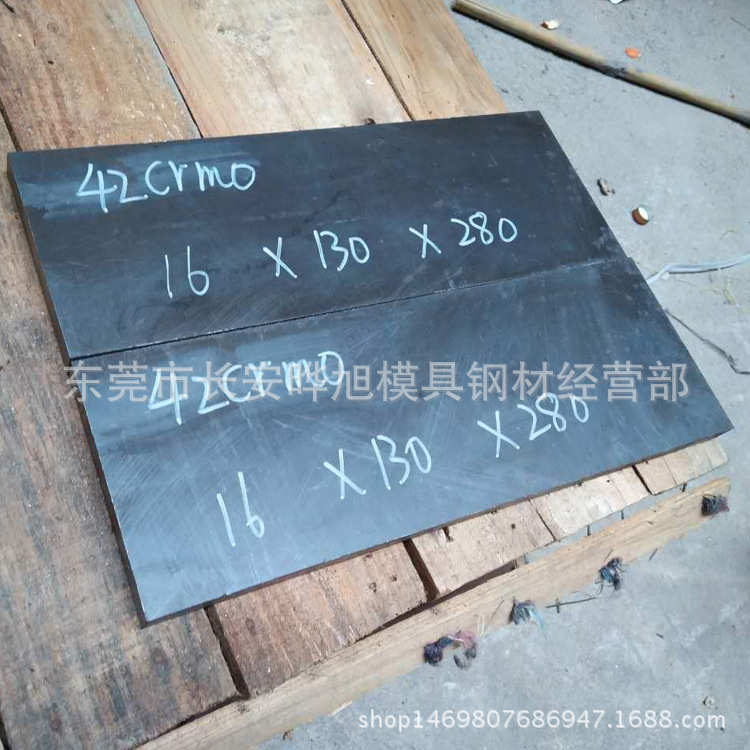 42Crmo
16 X 130 X 280
东莞市长安晔旭模具钢材经营部
42Crmo
16 X 130 X 280
shop1469807686947.1688.com